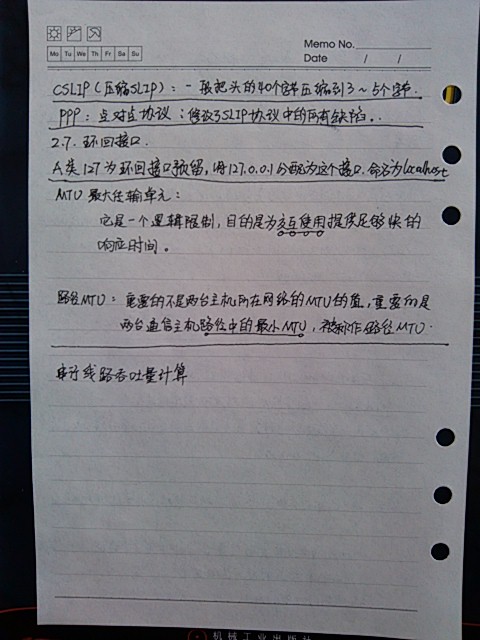 Memo No.
Mo Tu We Th Fr Sa Su
Date / /
CSLIP(压缩SLIP):一般把头的40个字节压缩到3~5个字节.
PPP:点对点协议:修改了SLIP协议中的所有缺陷。.
2.7. 环回接口.
A类127为环回接口预留,将127.0.0.1分配为这个接口.命名为localhost
MTU 最大传输单元:
它是一个逻辑限制,目的是为交互使用提供足够快的
响应时间。
路径MTU:重要的不是两台主机所在网络的MTU的值,重要的是
两台通信主机路径中的最小MTU,被称作路径MTU.
串行线路吞吐量计算
机械工业出版社